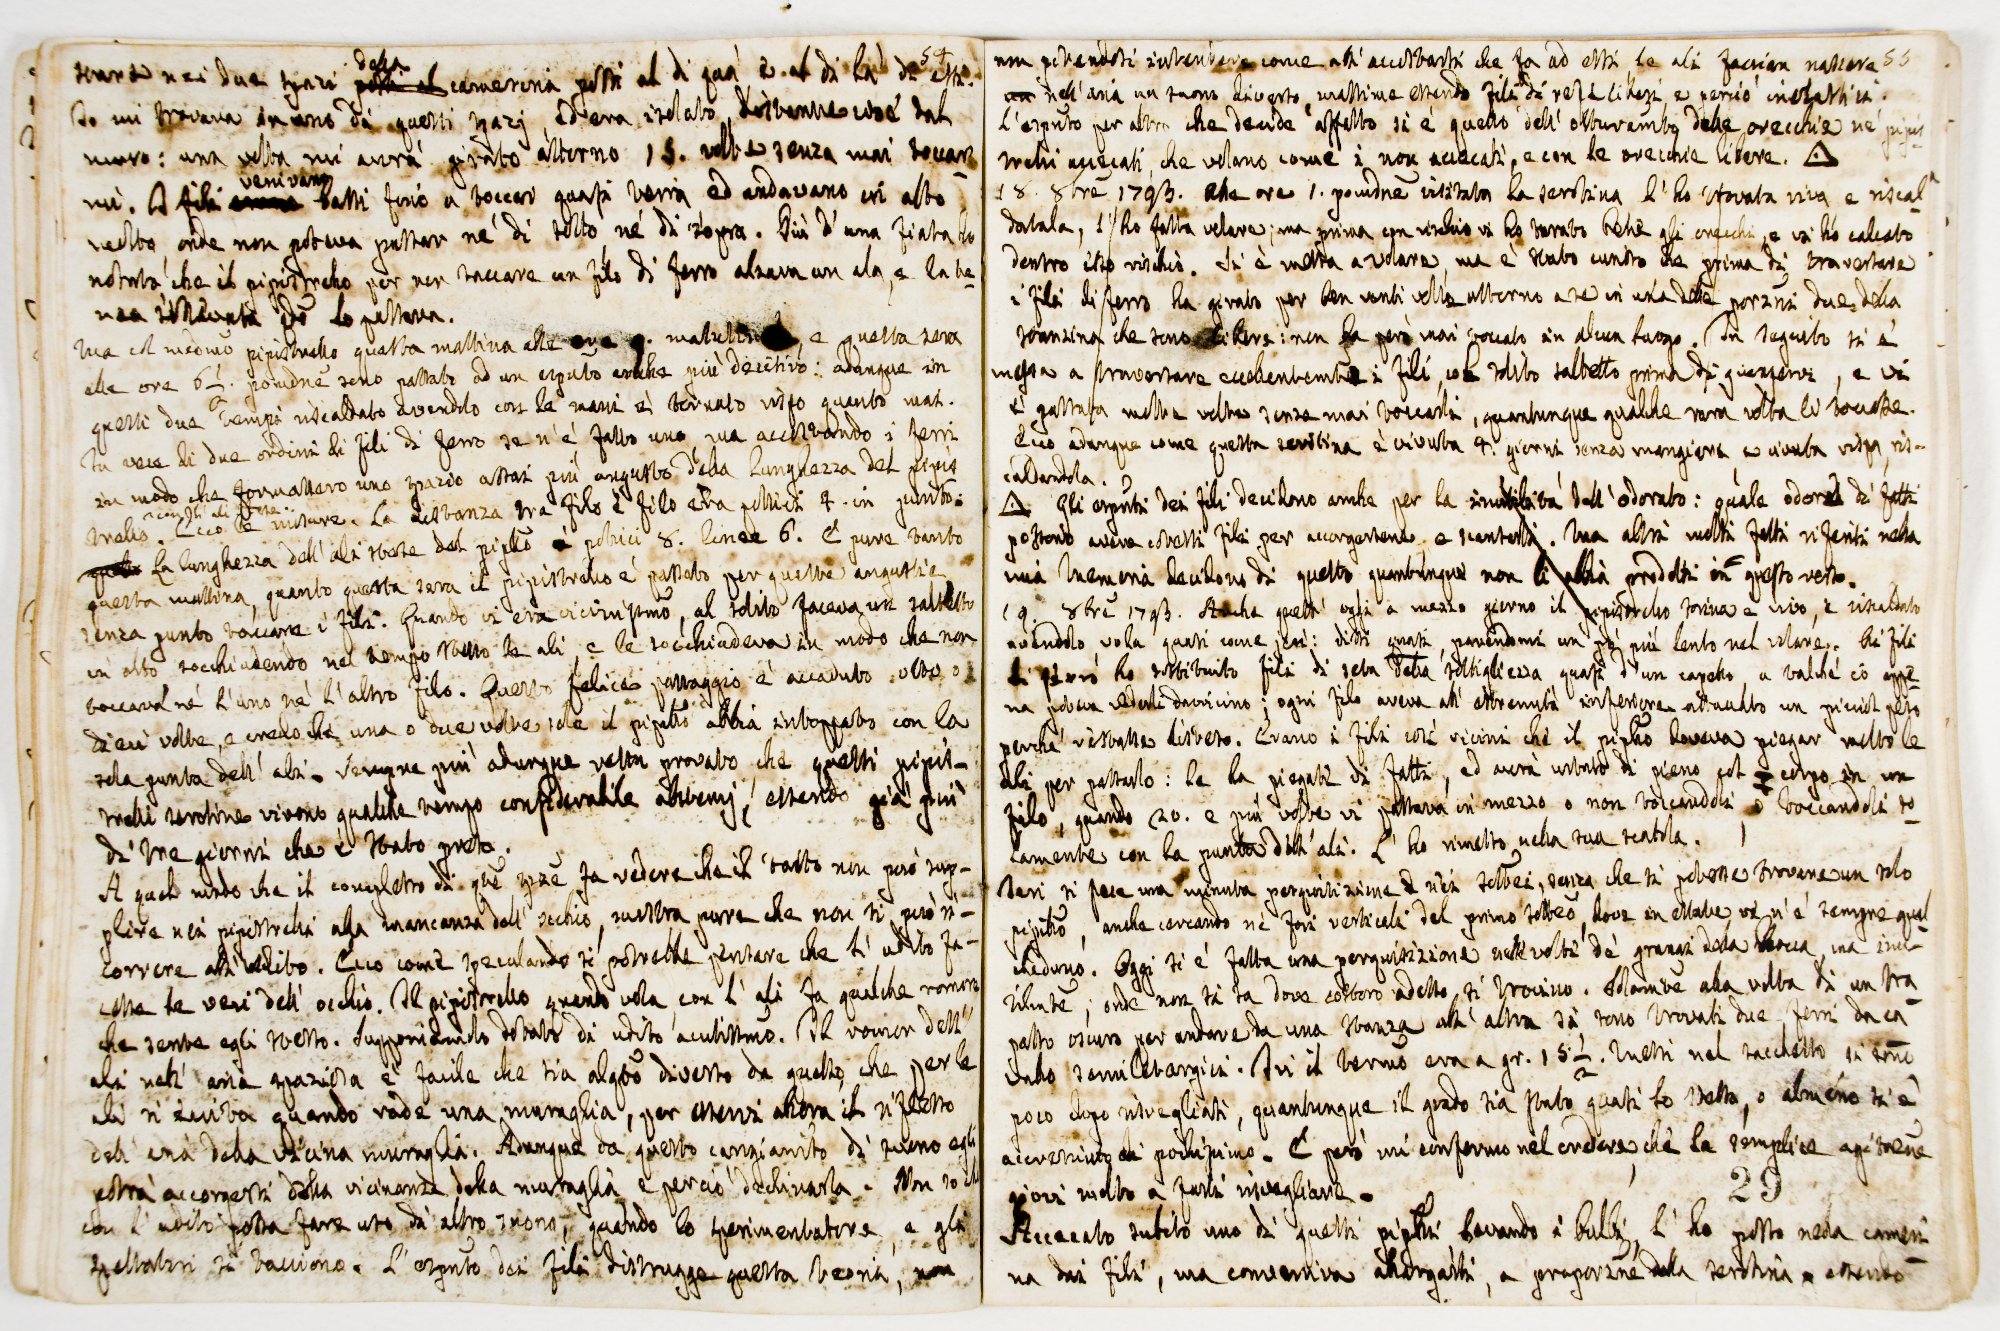 54
nei due spazi della camerina posti al di quà e al di là di essi.
Io mi trovava in uno di questi spazj ed era isolato, distante cioè dal
muro: una volta mi avrà girato attorno 15. volte senza mai toccar
mi. I fili venivano bassi fino a toccar quasi terra ed andavano in alto
molto, onde non poteva passar né di sotto, né di sopra. Più d'una fiata ho
notato che il pipistrello per non toccare un filo di ferro alzava un ala, e la te
nea sollevata lo passava.
Ma col medmo pipistrello questa mattina alle ore 9. mattutine, e questa sera
alle ore 6½. pomdne sono passato ad un esprto anche più decisivo: adunque in
questi due tempi riscaldato avendolo con le mani è tornato vispo quanto mai.
In vece di due ordini di fili di ferro se n'è fatto uno ma accostando i ferri
in modo che formassero uno spazio assai più angusto della lunghezza del pipis
trello. Ecco le misure. La distanza tra filo e filo era pollici 4. in punto:
con l'ali stese
La lunghezza dell'ali stese del pipllo pollici 8. linee 6. E pure tanto
questa mattina, quanto questa sera il pipistrello è passato per queste angustie
senza punto toccare i fili. Quando vi era vicinissimo, al solito faceva un saltetto
in alto socchiudendo nel tempo stesso le ali e le socchiudeva in modo che non
toccava né l'uno né l'altro filo. Questo felice passaggio è accaduto otto o
dieci volte, e credo che una o due volte sole il pipllo abbia intoppato con la
sola punta dell'ali. Sempre più adunque resta provato che questi pipis-
trelli serotine vivono qualche tempo considerabile astemj, essendo già più
di tre giorni che è stato preso.
A quel modo che il complesso di qte spze fa vedere che il tatto non può sup-
plire nei pipistrelli alla mancanza dell'occhio, mostra pure che non si può ri-
correre all'udito. Ecco come speculando si potrebbe pensare che l'udito fa-
cesse le veci dell'occhio. Il pipistrello quando vola con l'ali fa qualche romore
che sente egli stesso. Supponiamolo dotato di udito acutissmo. Il romor dell'
ali nell'aria spaziosa è facile che sia alqto diverso da quello, che per le
ali si eccita quando rade una muraglia, per esservi allora il riflesso
dell'aria dalla vicina muraglia. Adunque da questo cangiamto di suono egli
potrà accorgersi della vicinanza della muraglia e perciò declinarla. Non so che
con l'udito possa fare uso di altro suono, quando lo sperimentatore, e gli
spettatori si tacciono. L'esprto dei fili distrugge questa teoria, non
55
non potendosi intendere come all'accostarsi che fa ad essi le ali faccian nascere
nell'aria un suono diverso, massime essendo fili di refe sottili, e perciò inelastici.
L'esprto per altro che decide affatto si è quello dell'otturamto delle orecchie ne' pipis-
trelli accecati, che volano come i non accecati, e con le orecchie libere. △
18. 8bre 1793. Alle ore 1. pomdne visitata la serotina l'ho trovata viva e riscal-
datala, l'ho fatta volare; ma prima con vischio vi ho turato bene gli orecchi, e vi ho calcato
dentro esso vischio. Si è messa a volare, ma è stato curioso che prima di traversare
i fili di ferro ha girato per ben venti volte attorno a se in una delle porzni due della
stanzina che sono libere: non ha però mai toccato in alcun luogo. In seguito si è
messa a traversare eccellentemte i fili, col solito saltetto prima di giugnervi, e vi
è passata molte volte senza mai toccarli, quantunque qualche rara volta li toccasse.
Ecco adunque come questa serotina è vivuta 4. giorni senza mangiare e vivuta vispa, ris-
caldandola.
△ Gli esprti dei fili decidono anche per la inutilità dell'odorato: quale odore di fatti
possono avere cotesti fili per accorgersene, e scansarli. Ma altri molti fatti riferiti nella
mia Memoria decidono di questo quantunque non li abbia prodotti in questo verso.
19. 8bre 1793. Anche quest'oggi a mezzo giorno il pipistrello serotina è vivo, e riscaldato
avendolo vola quasi come jeri: dissi quasi, parendomi un pò più lento nel volare. Ai fili
di ferro ho sostituito fili di seta della sottigliezza quasi d'un capello, a talché io appe
na poteva vederli davvicino; ogni filo aveva all'estremità inferiore attaccato un piccol peso
perché restasse disteso. Erano i fili così vicini che il pipllo doveva piegar molto le
ali per passarlo: le ha piegate di fatti, ed avrà urtato di pieno col corpo in un
filo, quando 20. e più volte vi passava in mezzo o non toccandoli o toccandoli so-
lamente con la punta dell'ali. L'ho rimesso nella sua scatola.
Jeri si fece una minuta perquisizione nei sottei, senza che si potesse trovare un solo
pipllo, anche cercando ne' fori verticali del primo sotteo, dove in estate vi n'è sempre qual
cheduno. Oggi si è fatta una perquisizione nelle volte de' granai della Rocca, ma inu-
tilmte; onde non si sa dove costoro adesso si trovino. Solamte alla volta di un tra-
passo oscuro per andare da una stanza all'altra si sono trovati due ferri da ca
vallo semiletargici. Ivi il termo era a gr. 15½. Messi nel sacchetto si sono
poco dopo risvegliati, quantunque il grado sia stato quasi lo stesso, o almeno si è
accresciuto di pochissimo. E però mi confermo nel credere, che la semplice agitazne
giovi molto a farli risvegliare.
29
Accecato subito uno di questi pipllli cavando i bulbi, l'ho posto nella cameri
na dai fili, ma conveniva allargarli, a proporzne della serotina essendo